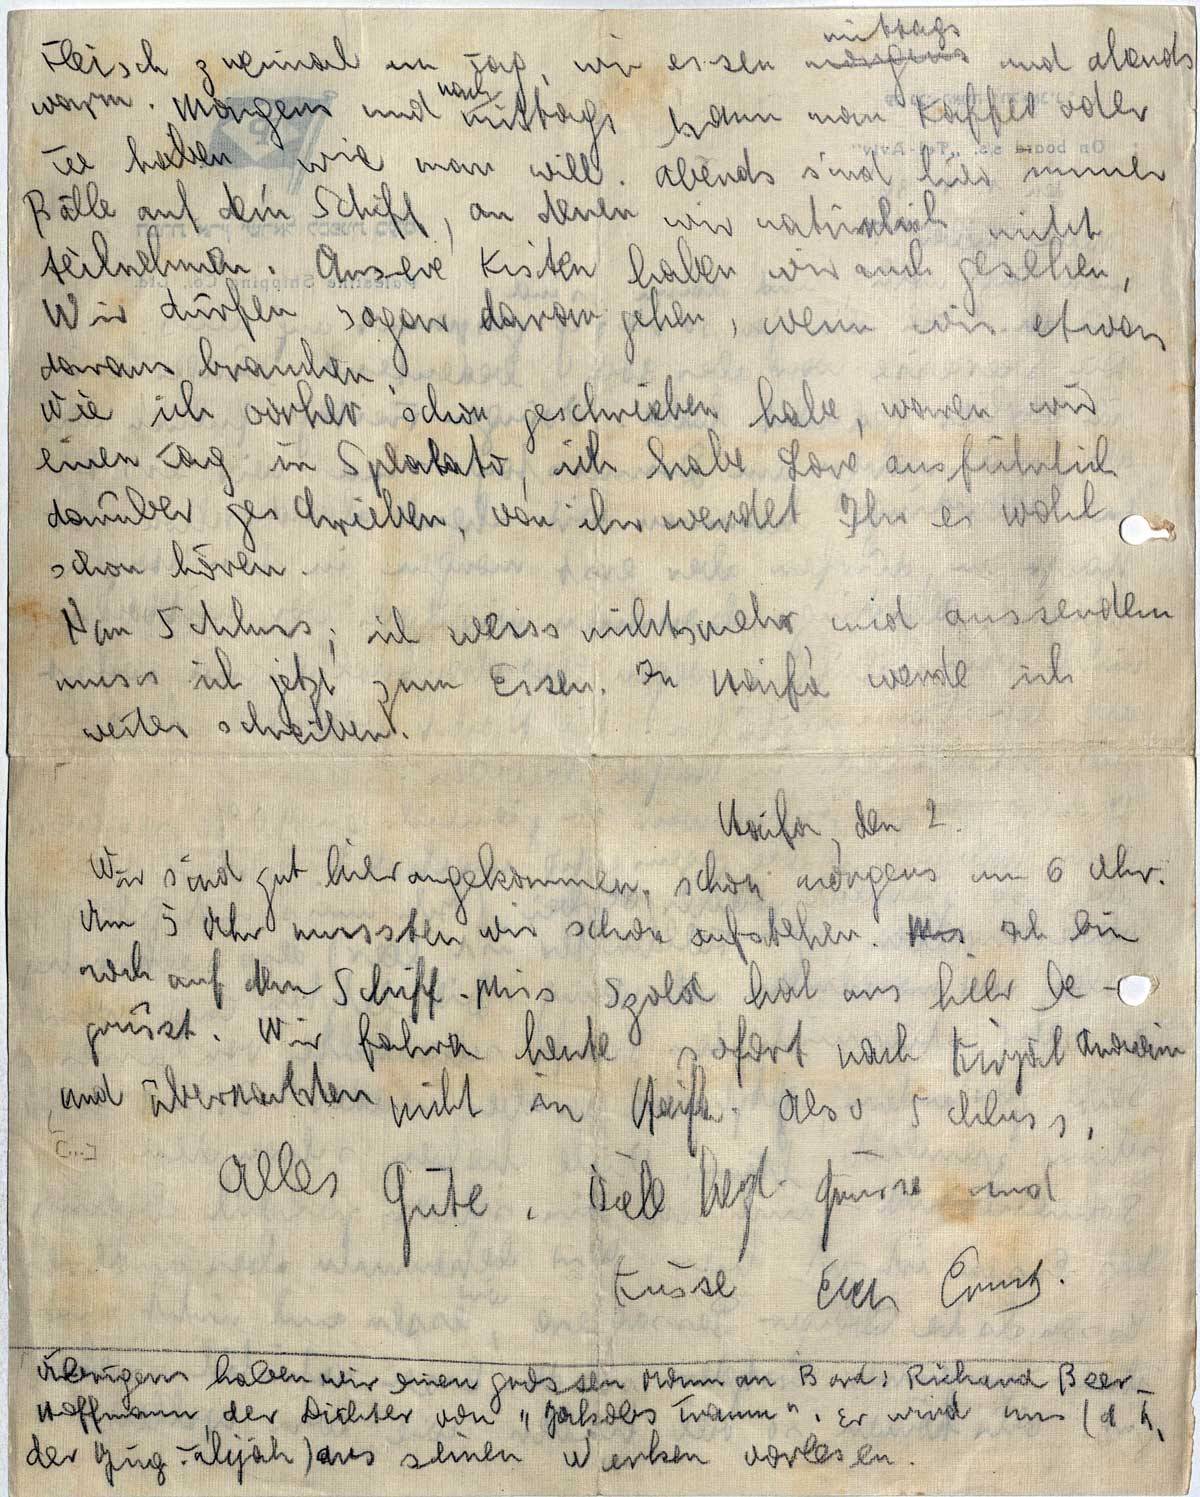 Fleisch zweimal am Tag, wir essen morgens mittags und abends
warm. Morgens und nachmittags kann man Kaffee oder
Tee haben wie man will. Abends sind hier immer
Bälle auf dem Schiff, an denen wir natürlich nicht
teilnehmen. Unsere Kisten haben wir auch gesehen,
Wir dürfen sogar daran gehen, wenn wir etwas
daraus brauchen.
Wie ich vorher schon geschrieben habe, waren wir
einen Tag in Spalato, ich habe Lore ausführlich
darüber geschrieben, von ihr werdet Ihr es wohl
schon hören.
Nun Schluss, ich weiss nichts mehr, und ausserdem
muss ich jetzt zum Essen. In Haifa werde ich
weiter schreiben.
Haifa, den 2.
Wir sind gut hier angekommen, schon morgens um 6 Uhr.
Um 5 Uhr mussten wir schon aufstehen. Ich bin
noch auf dem Schiff. Miss Szold hat uns hier be-
grüsst. Wir fahren heute sofort nach Kirjat
und übernachten nicht in Haifa. Also Schluss,
[...]
Alles Gute, Viele herzl. Grüsse und
Küsse Euer Ernst.
Übrigens haben wir einen grossen Mann an Bord: Richard Beer-
Hoffmann, der Dichter von "Jakobs Traum". Er wird uns (d. h.
der Jug-Alijah) aus seinen Werken vorlesen.